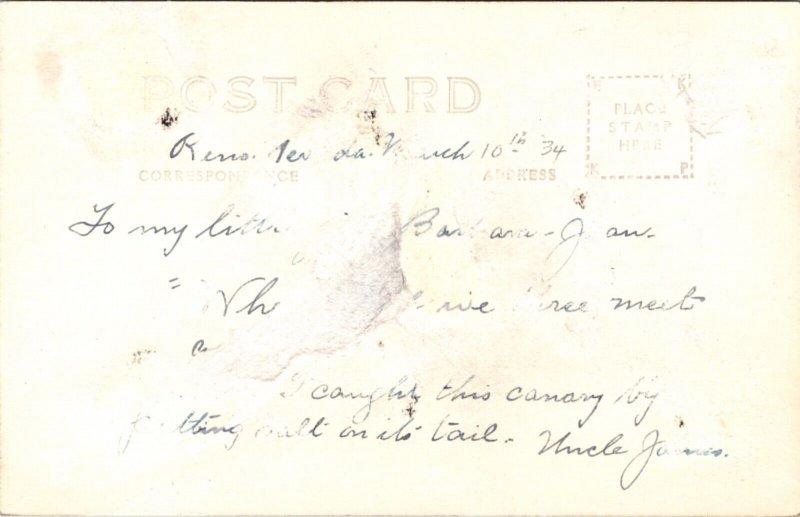 POST CARD
PLACE
STAMP
HERE
K P
Reno, March 10th 34
CORRESPONDENCE ADDRESS
To my Barbara-Jean-
"
we three meet
I caught this canary by
putting salt on its tail- Uncle James.